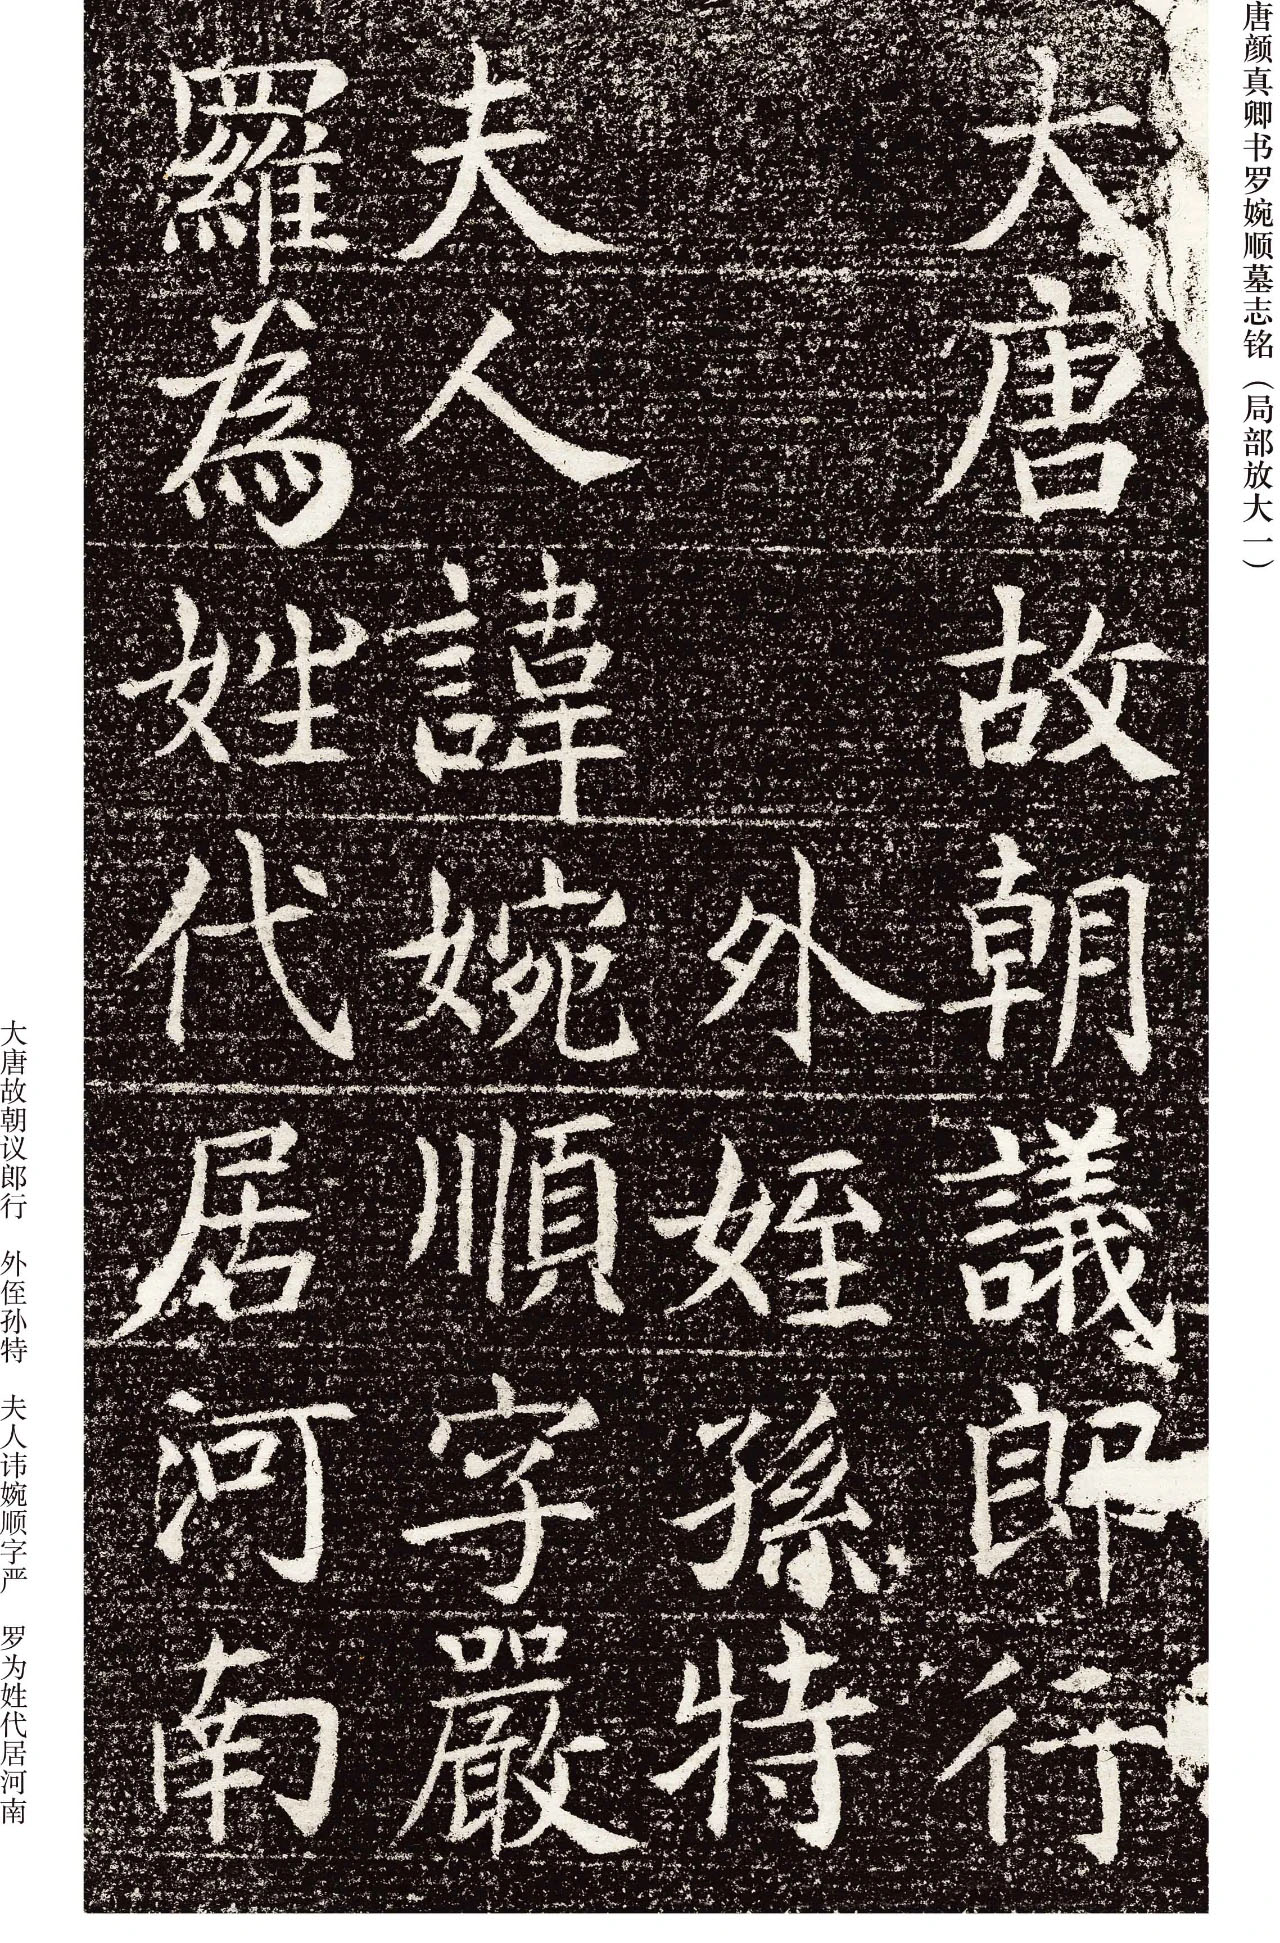 唐颜真卿书罗婉顺墓志铭（局部放大一）
大唐故朝議郎行
外姪孫特
夫人諱婉順字嚴
羅為姓代居河南
大唐故朝议郎行　外侄孙特　夫人讳婉顺字严　罗为姓代居河南